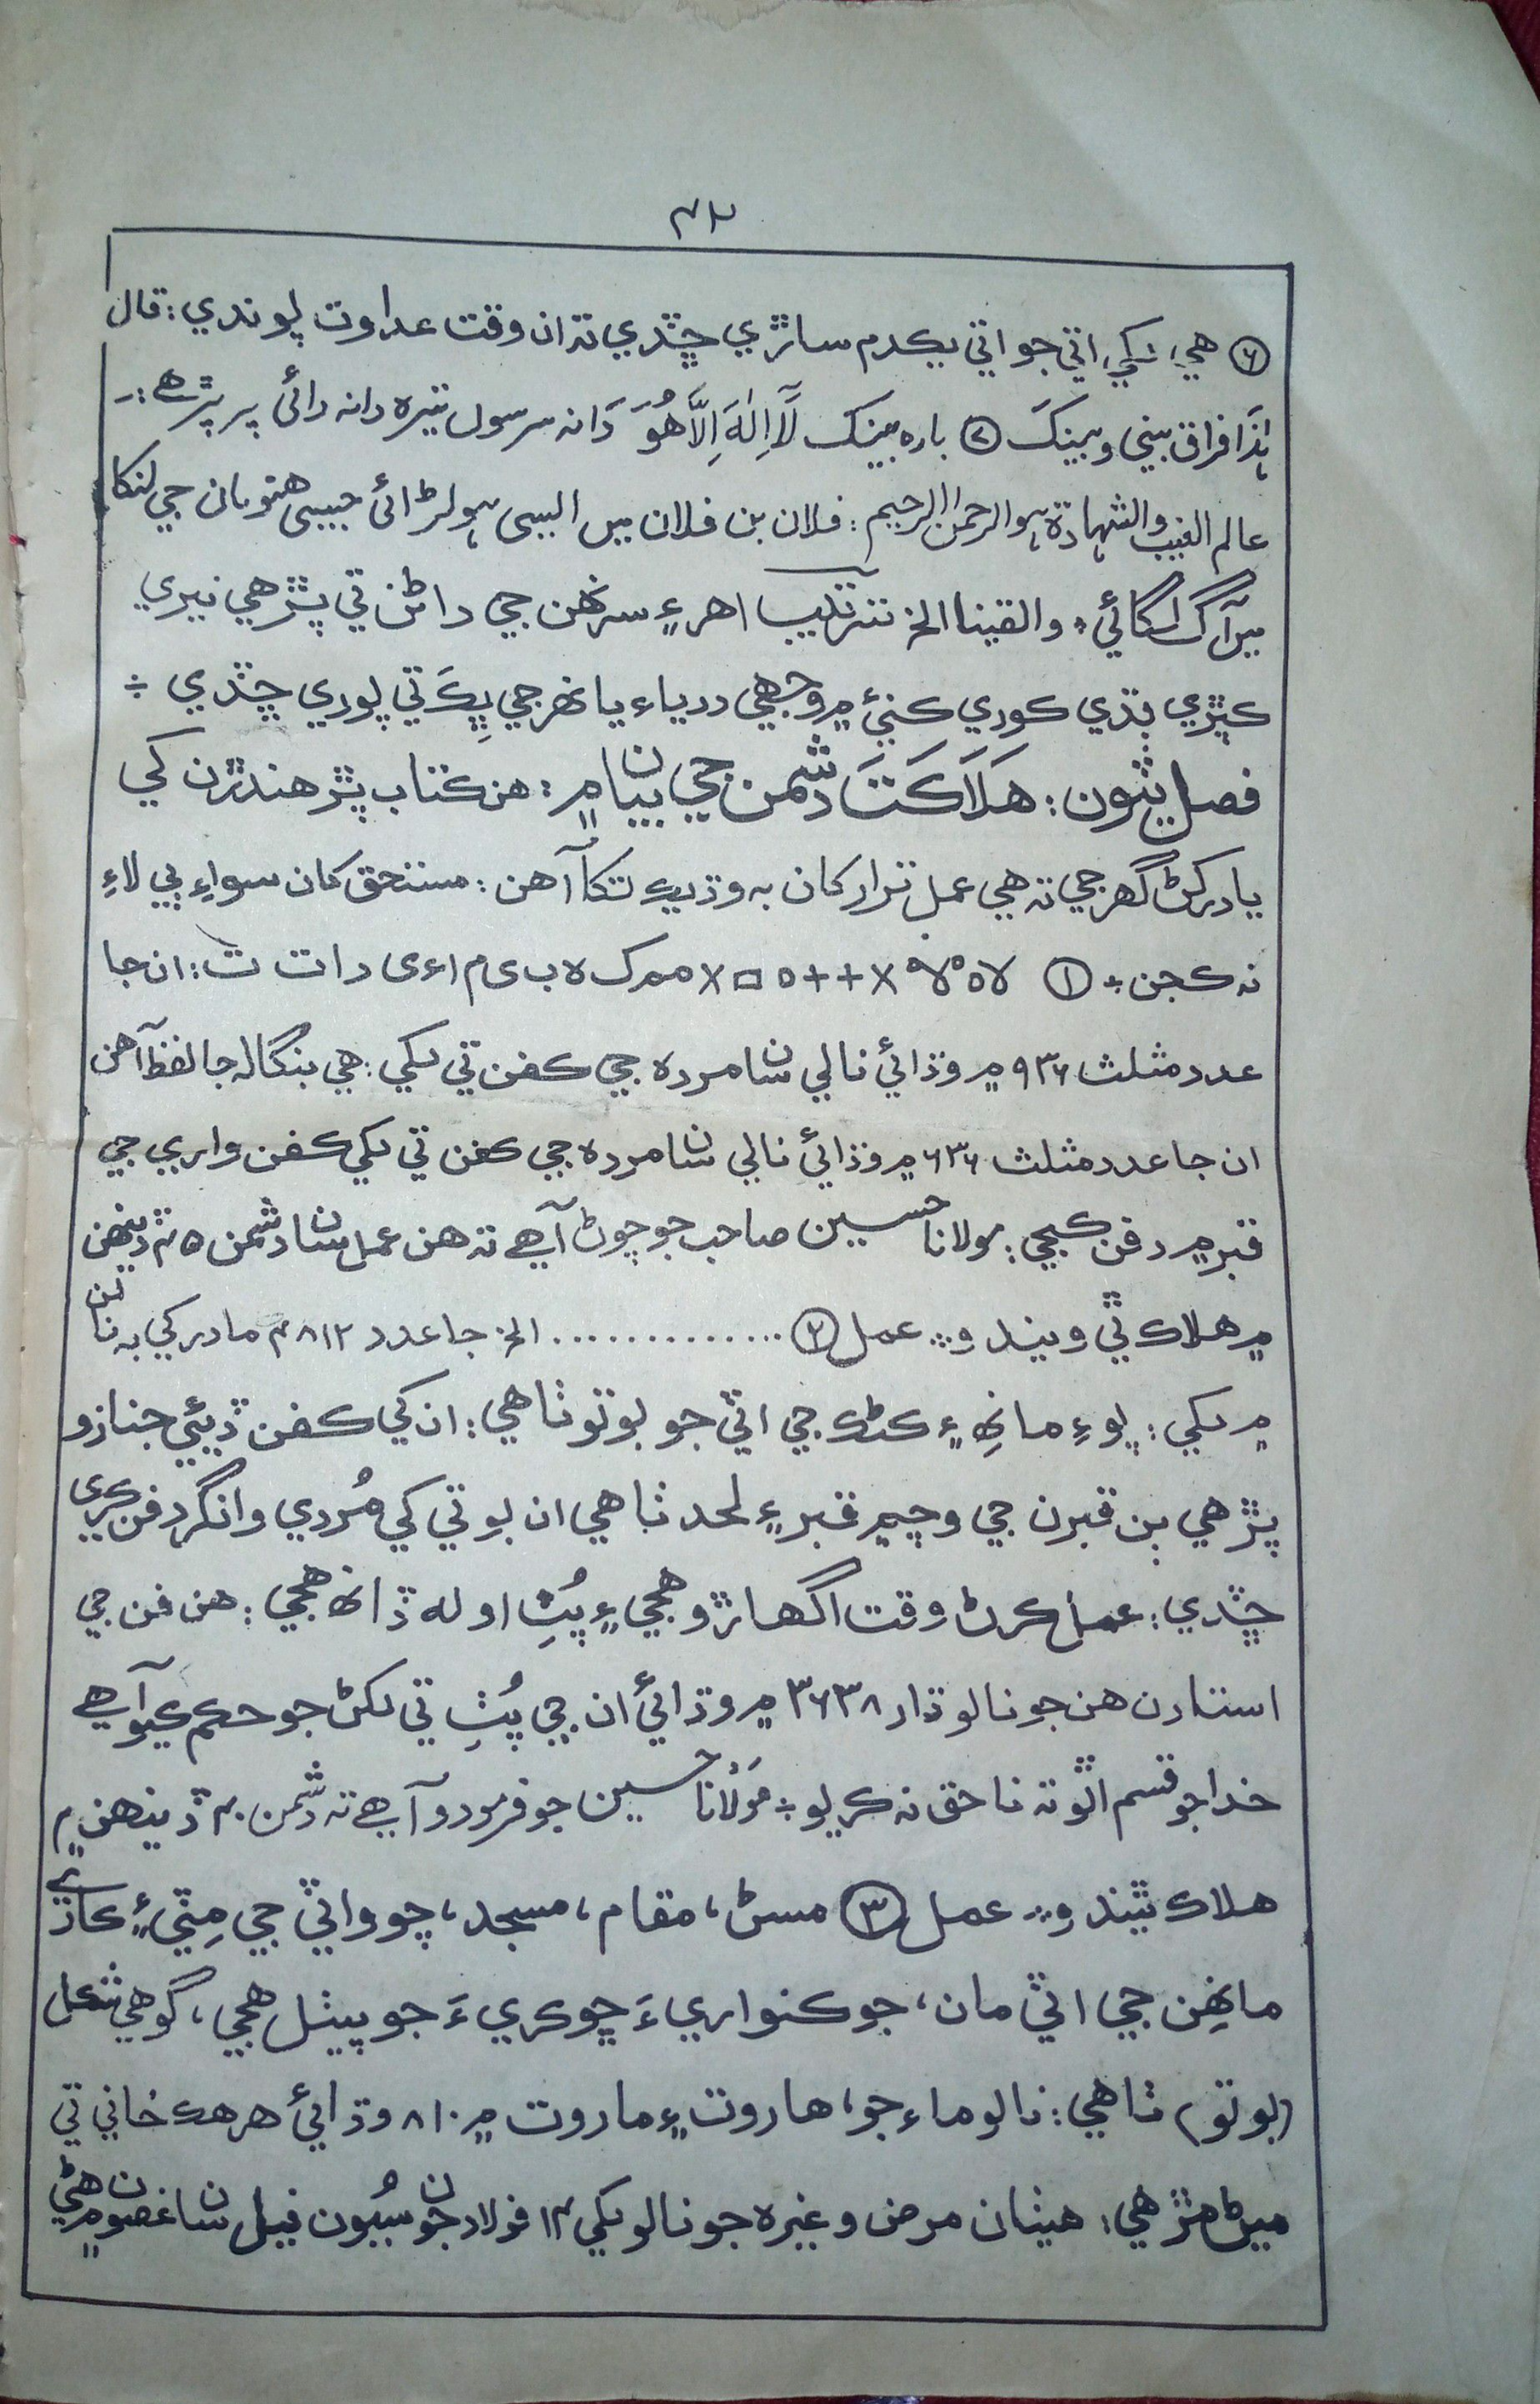 ۴۲
⑥ هي لکي اتي جو اتي يڪدم ساڙي ڇڏي ته ان وقت عداوت پوندي: قال
ہٰذَا فراق بيني وبينڪَ ⑦ باره بينڪ لَآ اِلٰهَ اِلَّا هُوَ دَانه سرسول تيره دانه رائي پر پڙهي:-
عالم الغيب والشهادة هو الرحمن الرحيم: فلان بن فلان ميں ايسي ہو لڑائي جيسي هنومان جي لنکا
ميں آگ لگائي، والقينا الخ ترتيب اهر ۽ سرنهن جي داڻن تي پڙهي نيري
ڪپڙي ٻڌي ڪوري ڪني ۾ وجهي درياءِ يا نهر جي ڀِڪَ تي پوري ڇڏي ÷
فصل ٽيون: هَلَاڪَتَ دشمن جي بيان ۾: هن ڪتاب پڙهندڙن کي
ياد رکڻ گهرجي ته هي عمل ترار کان به وڌيڪ تکا آهن: مستحق کان سواءِ ٻي لاءِ
نه ڪجن ÷ ① لا ه لا x + + ه □ x ممرک ه ب ی م ا ء ی د ا ت ت: ان جا
عدد مثلث ۹۳۶ ۾ وڌائي نالي سان مرده جي ڪفن تي لکي: هي بنگاله جا لفظ آهن
ان جا عدد مثلث ۶۳۶ ۾ وڌائي نالي سان مرده جي ڪفن تي لکي ڪفن واري جي
قبر ۾ دفن ڪجي: مولانا حسين صاحب جو چوڻ آهي ته هن عمل سان دشمن ۴۵ ڏينهن
۾ هلاڪ ٿي ويندو ÷ عمل ② .............. الخ جا عدد ۸۱۲۴ مادر کي به نان
۾ لکي: پوءِ مانهِ ۽ ڪڻڪ جي اٽي جو بوتو ٺاهي: ان کي ڪفن ڏيئي جنازو
پڙهي ٻن قبرن جي وچ ۾ قبر ۽ لحد ٺاهي ان بوتي کي مُردي وانگر دفن ڪري
ڇڏي: عمل ڪرڻ وقت اگهاڙو هجي ۽ پُٺِ اوله ڏانهن هجي: هن فن جي
استادن هن جو نالو ڌار ۳۶۳۸ ۾ وڌائي ان جي پُٺِ تي لکڻ جو حڪم ڪيو آهي
خدا جو قسم اٿو ته ناحق نه ڪريو ÷ مَولانا حسين جو فرمودو آهي ته دشمن ۴۰ ڏينهن ۾
هلاڪ ٿيندو ÷ عمل ③ مسڻ، مقام، مسجد، چوواٽي جي مِٽي ۽ ڪاري
مانهن جي اٽي مان، جو ڪنواري ءَ ڇوڪري ءَ جو پيٺل هجي، گوهي شڪل
(بوتو) ٺاهي: نالو ماءُ جو، هاروت ۽ ماروت ۾ ۸۱۰ وڌائي هر هڪ خاني تي
ميڻ مڙهي: هيٺان مرض وغيره جو نالو لکي ۱۴ فولاد جون سُيون نيل سان عضون ۾ هڻي